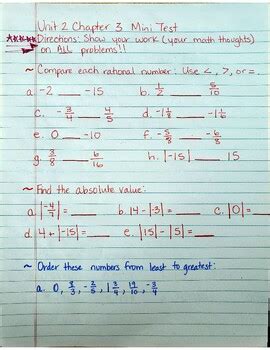 Unit 2 Chapter 3 Mini Test
★★★★★ Directions: Show your work (your math thoughts)
on ALL problems!!
~ Compare each rational number: Use <, >, or =.
a. -2 ___ -15 b. 1/2 ___ 5/10
c. -3/4 ___ 4/5 d. -1 1/8 ___ -1 1/6
e. 0 ___ -10 f. -5/8 ___ -6/8
g. 3/8 ___ 6/16 h. |-15| ___ 15
~ Find the absolute value:
a. |-4/7| = ___ b. 14 - |-3| = ___ c. |0| = ___
d. 4 + |-15| = ___ e. |15| - |5| = ___
~ Order these numbers from least to greatest: